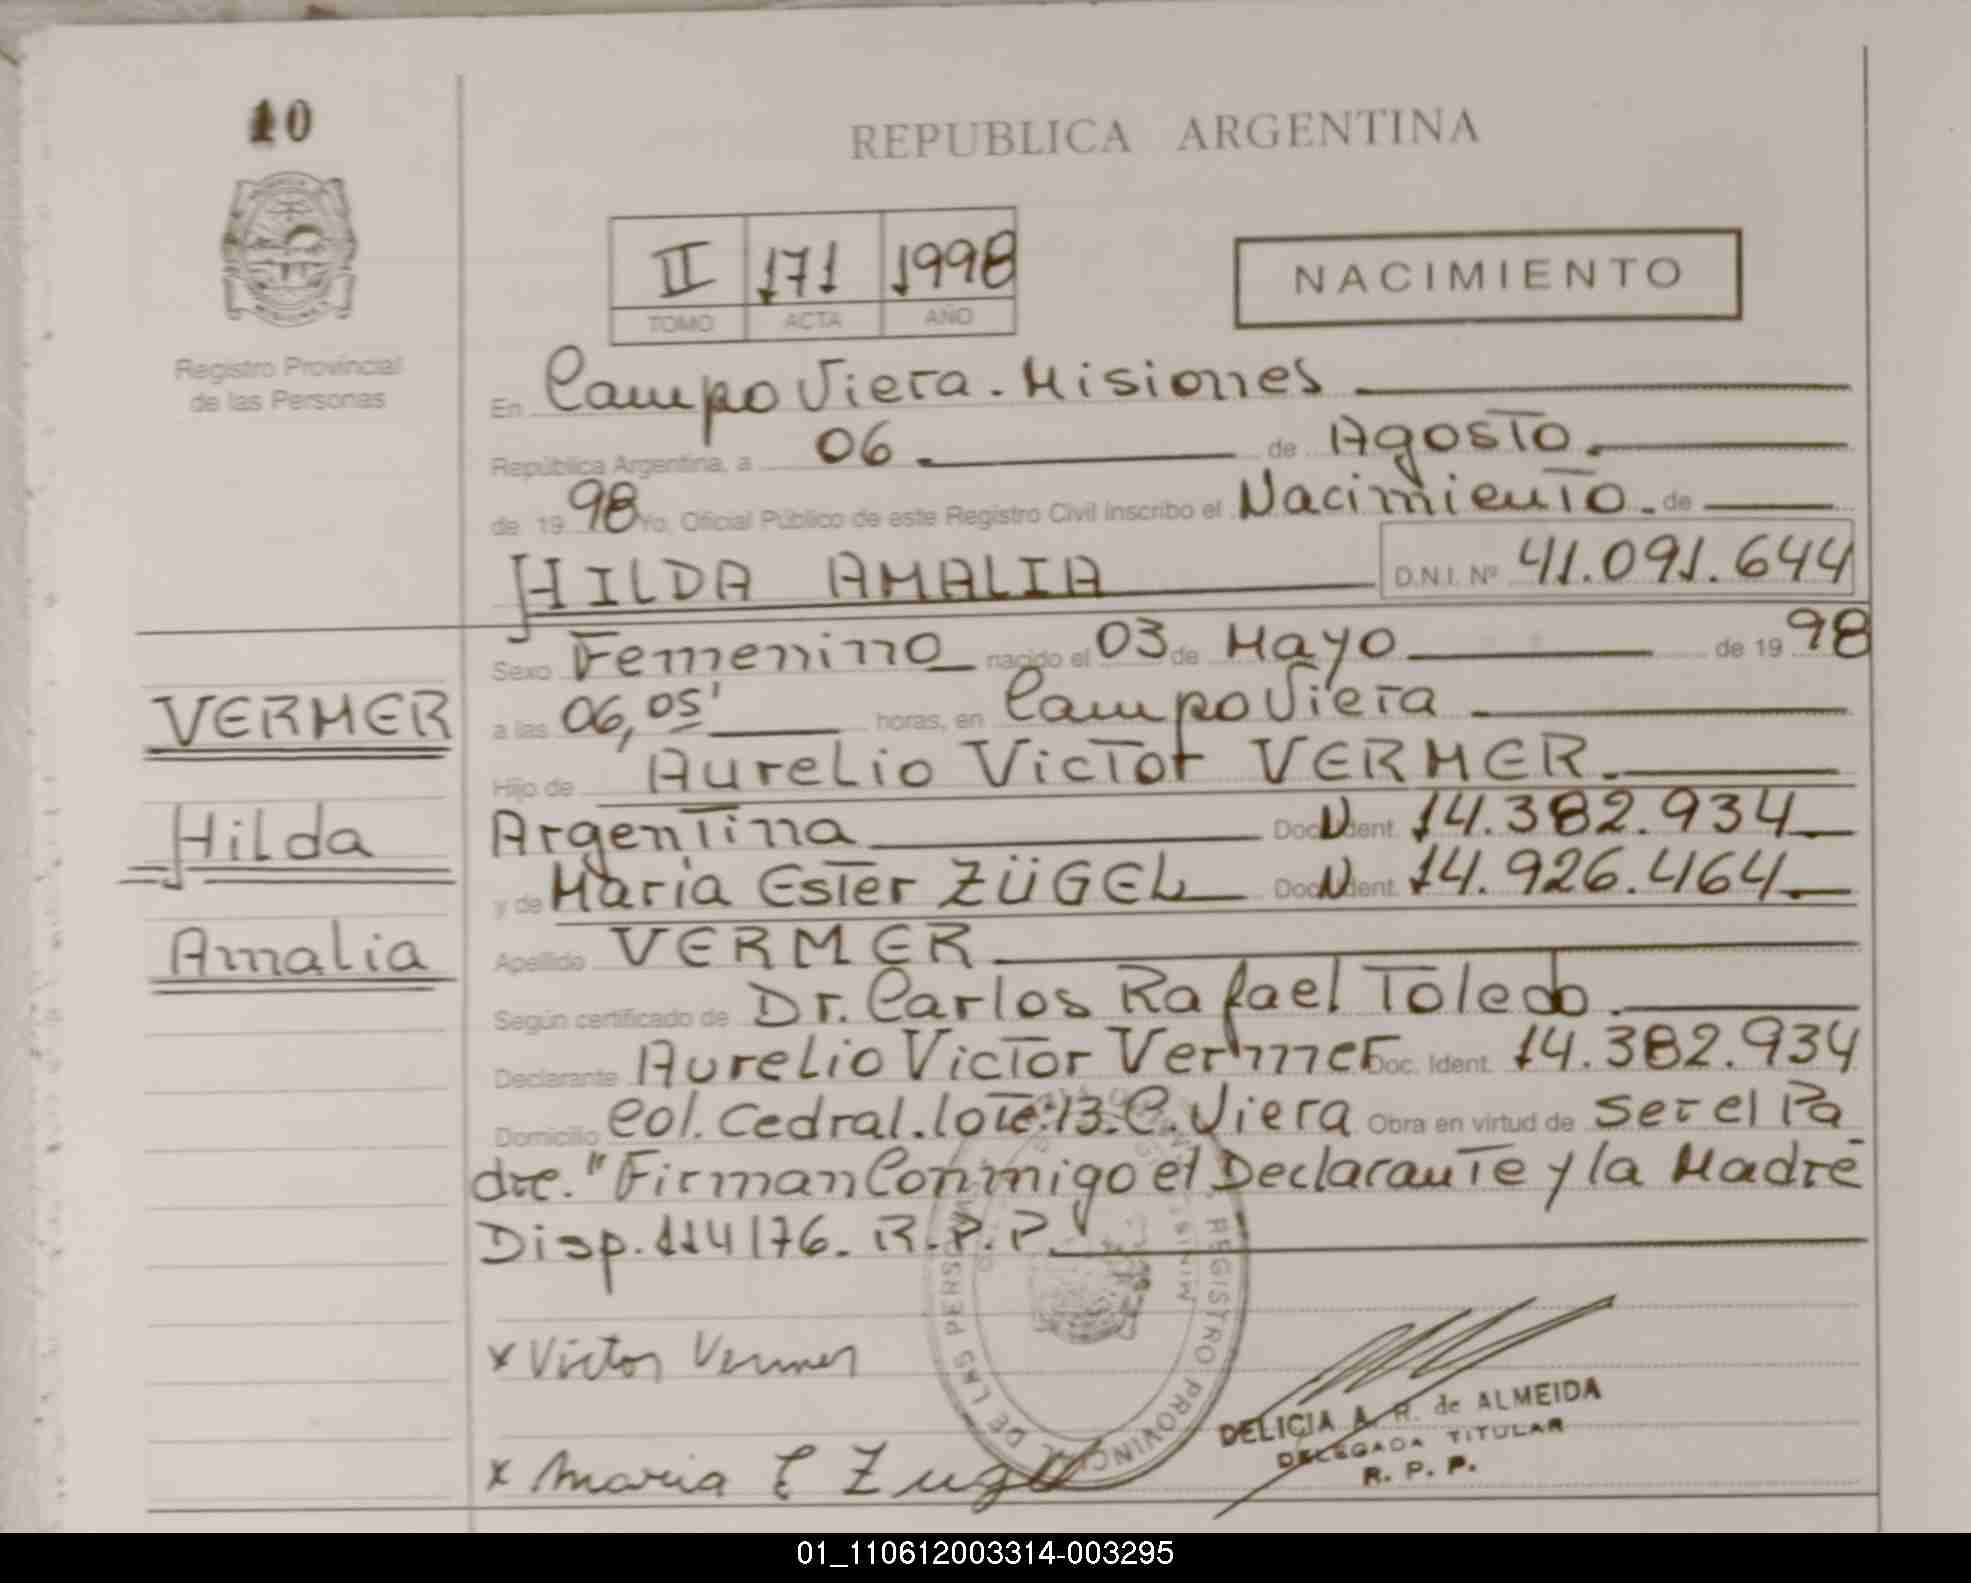 10
REPUBLICA ARGENTINA
II 171 1998
TOMO ACTA AÑO
NACIMIENTO
Registro Provincial
de las Personas
En Campo Viera. Misiones
República Argentina, a 06 de Agosto.
de 19 98 Yo, Oficial Público de este Registro Civil inscribo el Nacimiento. de
HILDA AMALIA D.N.I. Nº 41.091.644
Sexo Femenino nacido el 03 de Mayo de 19 98
a las 06,05' horas, en Campo Viera
Hijo de Aurelio Victor VERMER.
Argentina Doc. Ident. 14.382.934
y de María Ester ZÜGEL Doc. Ident. 14.926.464
Apellido VERMER
Según certificado de Dr. Carlos Rafael Toledo.
Declarante Aurelio Victor Vermer Doc. Ident. 14.382.934
Domicilio Col. Cedral. lote:13. C. Viera Obra en virtud de ser el Pa
dre. "Firman Conmigo el Declarante y la Madre
Disp. 114/76. R.P.P.
VERMER
Hilda
Amalia
x Victor Vermer
x Maria E Zugel
REGISTRO PROVINCIAL DE LAS PERSONAS
DELICIA A. R. de ALMEIDA
DELEGADA TITULAR
R. P. P.
01_110612003314-003295